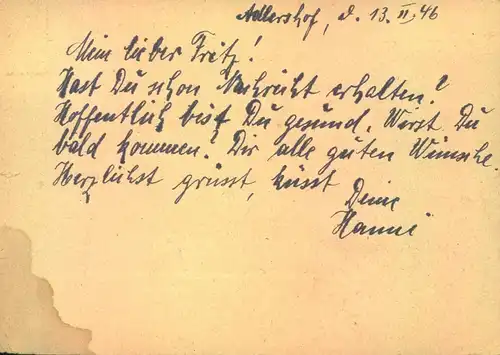 Adlershof, d. 13. II. 46
Mein lieber Fritz!
Hast Du schon Nachricht erhalten?
Hoffentlich bist Du gesund. Wirst Du
bald kommen? Dir alle guten Wünsche.
Herzlichst grüsst, küsst
Deine
Hanni